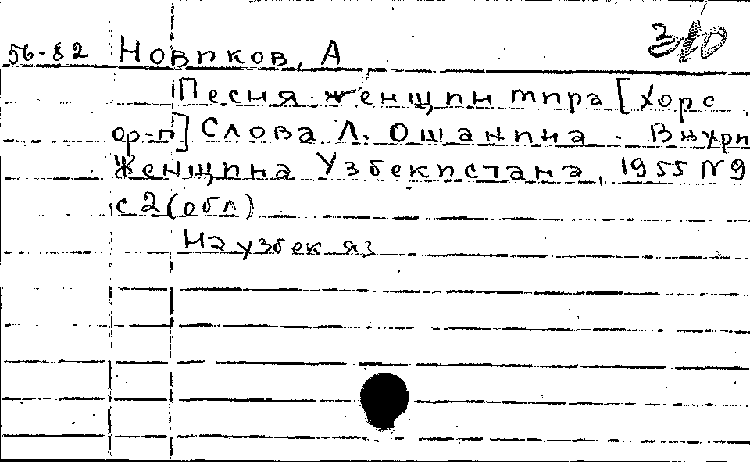 310
56-82 Новиков, А
Песня женщин мира [Хор с
ор-п] Слова Л. Ошанина - В журн
Женщина Узбекистана, 1955 № 9
с 2 (обл)
На узбек яз